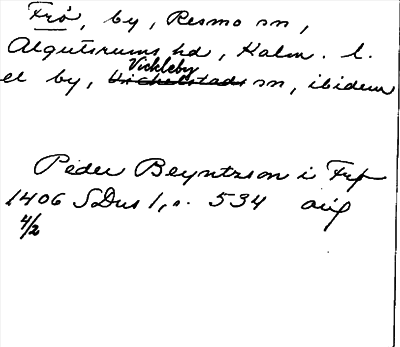 Frö, by, Resmo sn,
Algutsrums hd, Kalm. l.
el by, Vickleby sn, ibidem
Peder Beyntzson i Frø
1406 SDns 1, s. 534 orig
4/2